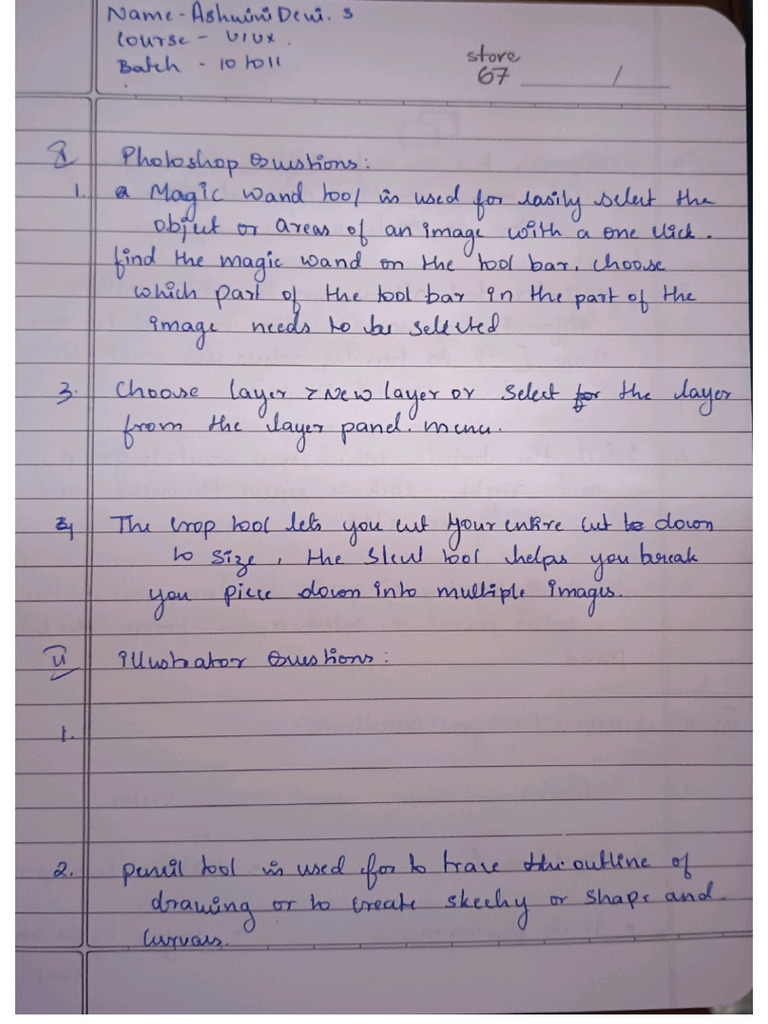 Name - Ashwini Devi. S
Course - UIUX.
Batch - 10 to 11
store
67 /
I Photoshop Questions:
1. a Magic wand tool is used for easily select the
object or areas of an image with a one click.
find the magic wand on the tool bar. Choose
which part of the tool bar in the part of the
image needs to be selected
3. Choose layer > New layer or Select the layer
from the layer panel. menu.
4 The crop tool lets you cut your entire cut down
to size, the tool helps you break
you piece down into multiple images.
II illustrator Questions:
1.
2. pencil tool is used for to trace the outline of
drawing or to create skechy or shape and
curvars.